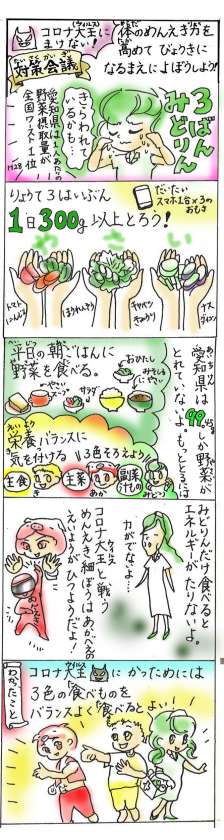 コロナ大王に
まけない!
体のめんえき力を
高めて びょうきに
なるまえによぼうしよう!
対策会議
3ばん
みどりん
きらわれて
いるかも…
愛知県は1人あたりの
野菜摂取量が
全国ワースト1位
りょうて3ばいぶん
だいたい
スマホ1台×3の
おもさ
1日300g以上とろう!
やさい
トマト
にんじん
ほうれんそう
キャベツ
きゅうり
ナス
ダイコン
愛知県は
しか野菜が
とれていないよ。もっととるには
平日の朝ごはんに
野菜を食べる。
サラダ
おかずに
みそしるに
やさい
栄養バランスに
気を付ける
3色そろえよう
主食
き
主菜
あか
副菜
汁もの
みどり
みどりんだけ食べると
エネルギーがたりないよ。
力がでないよ…
コロナ大王と戦う
めんえき細ぼうはあか人の
えいようがひつようだよ!
わかったこと
コロナ大王にかつためには
3色の食べものを
バランスよく食べるとよい!